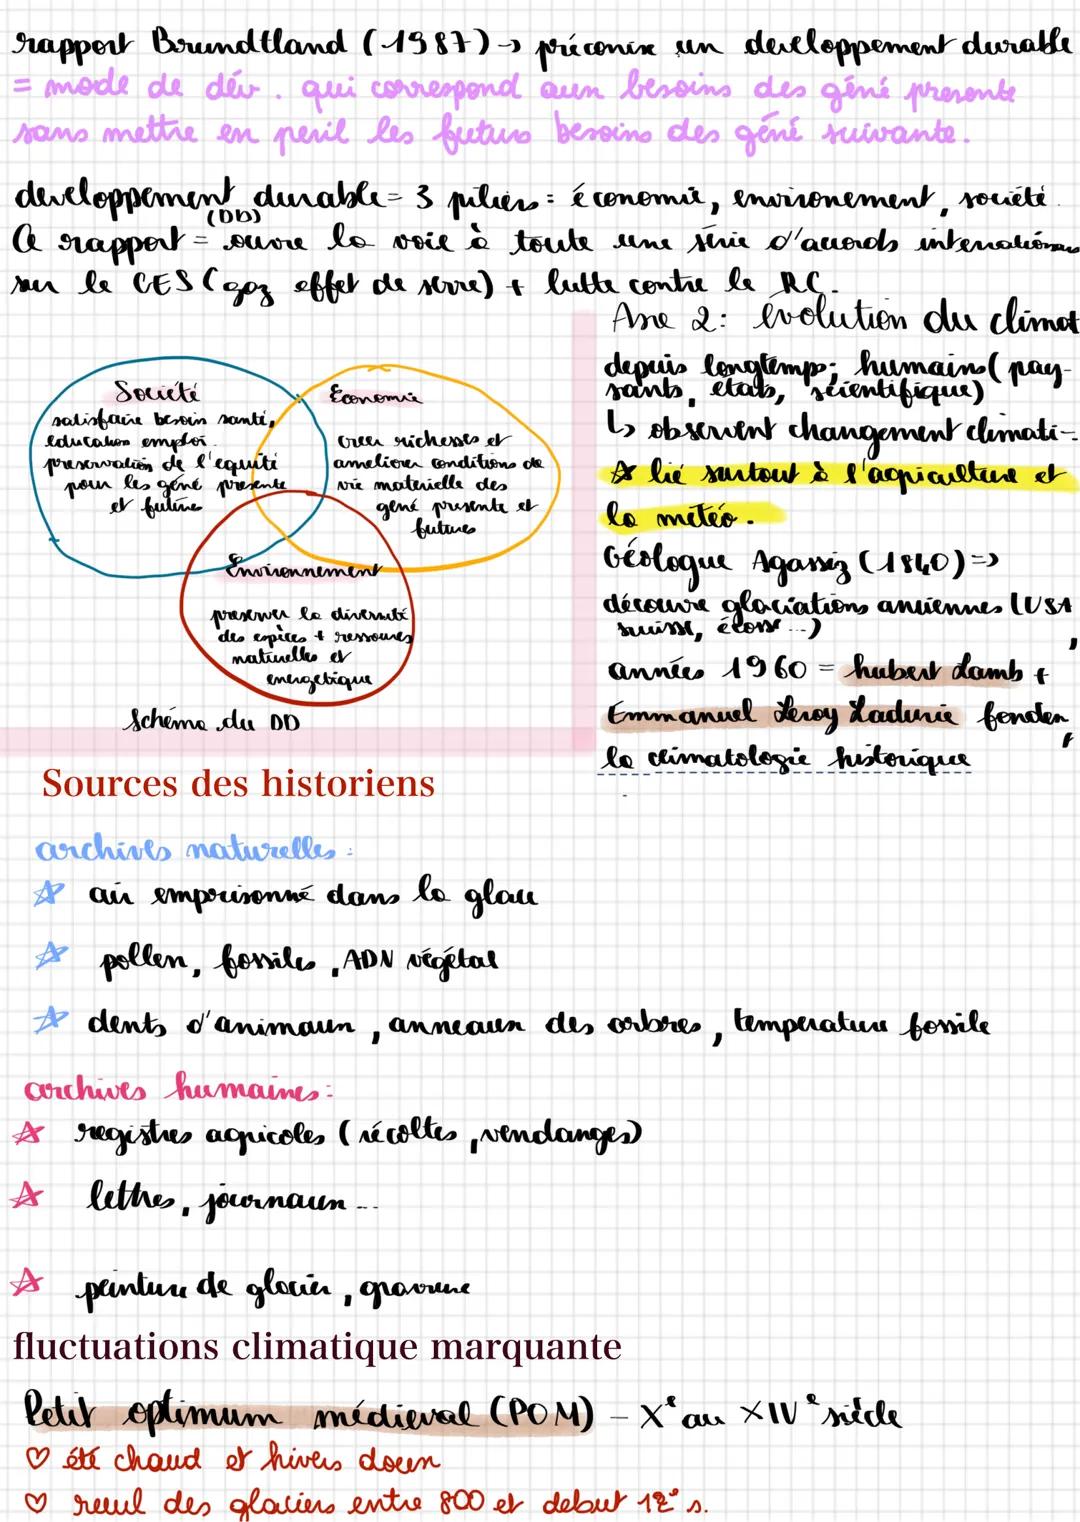 rapport Brundtland (1987) → préconise un developpement durable
= mode de dév. qui correspond aux besoins des géné presente
sans mettre en peril les futurs besoins des géné suivante.
developpement durable = 3 piliers : économie, environement, société.
(DD)
Ce rapport = ouvre la voie à toute une série d'accords internationaux
sur le GES (gaz effet de serre) + lutte contre le RC.
Société
satisfaire besoin santé,
education emploi.
preservation de l'equité
pour les géné presente
et futures
Economie
creer richesses et
ameliorer conditions de
vie materielle des
géné presente et
futures
Environnement
preserver la diversité
des espèces + ressources
naturelles et
energetique
Schéma du DD
Axe 2 : évolution du climat
depuis longtemps ; humains ( pay-
sants, etats, scientifique)
↳ observent changement climati-
☆ lié surtout à l'agriculture et
la météo.
Géologue Agassiz (1840) =>
découvre glaciations anciennes (USA,
suisse, écosse ...)
années 1960 = hubert Lamb +
Emmanuel Leroy Ladurie fonden,
la climatologie historique
Sources des historiens
archives naturelles :
☆ air emprisonné dans la glace
☆ pollen, fossiles, ADN végétal
☆ dents d'animaux, anneaux des arbres, temperature fossile
archives humaines :
☆ registres agricoles (récoltes, vendanges)
☆ lettres, journaux ...
☆ peinture de glacier, gravure
fluctuations climatique marquante
Petit optimum médieval (POM) - Xᵉ au XIVᵉ siècle
♡ été chaud et hivers doux
♡ recul des glaciers entre 800 et debut 12ᵉ s.